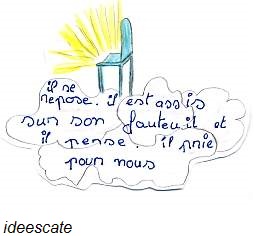 il se
repose. il est assis
sur son fauteuil et
il pense. il prie
pour nous
ideescate